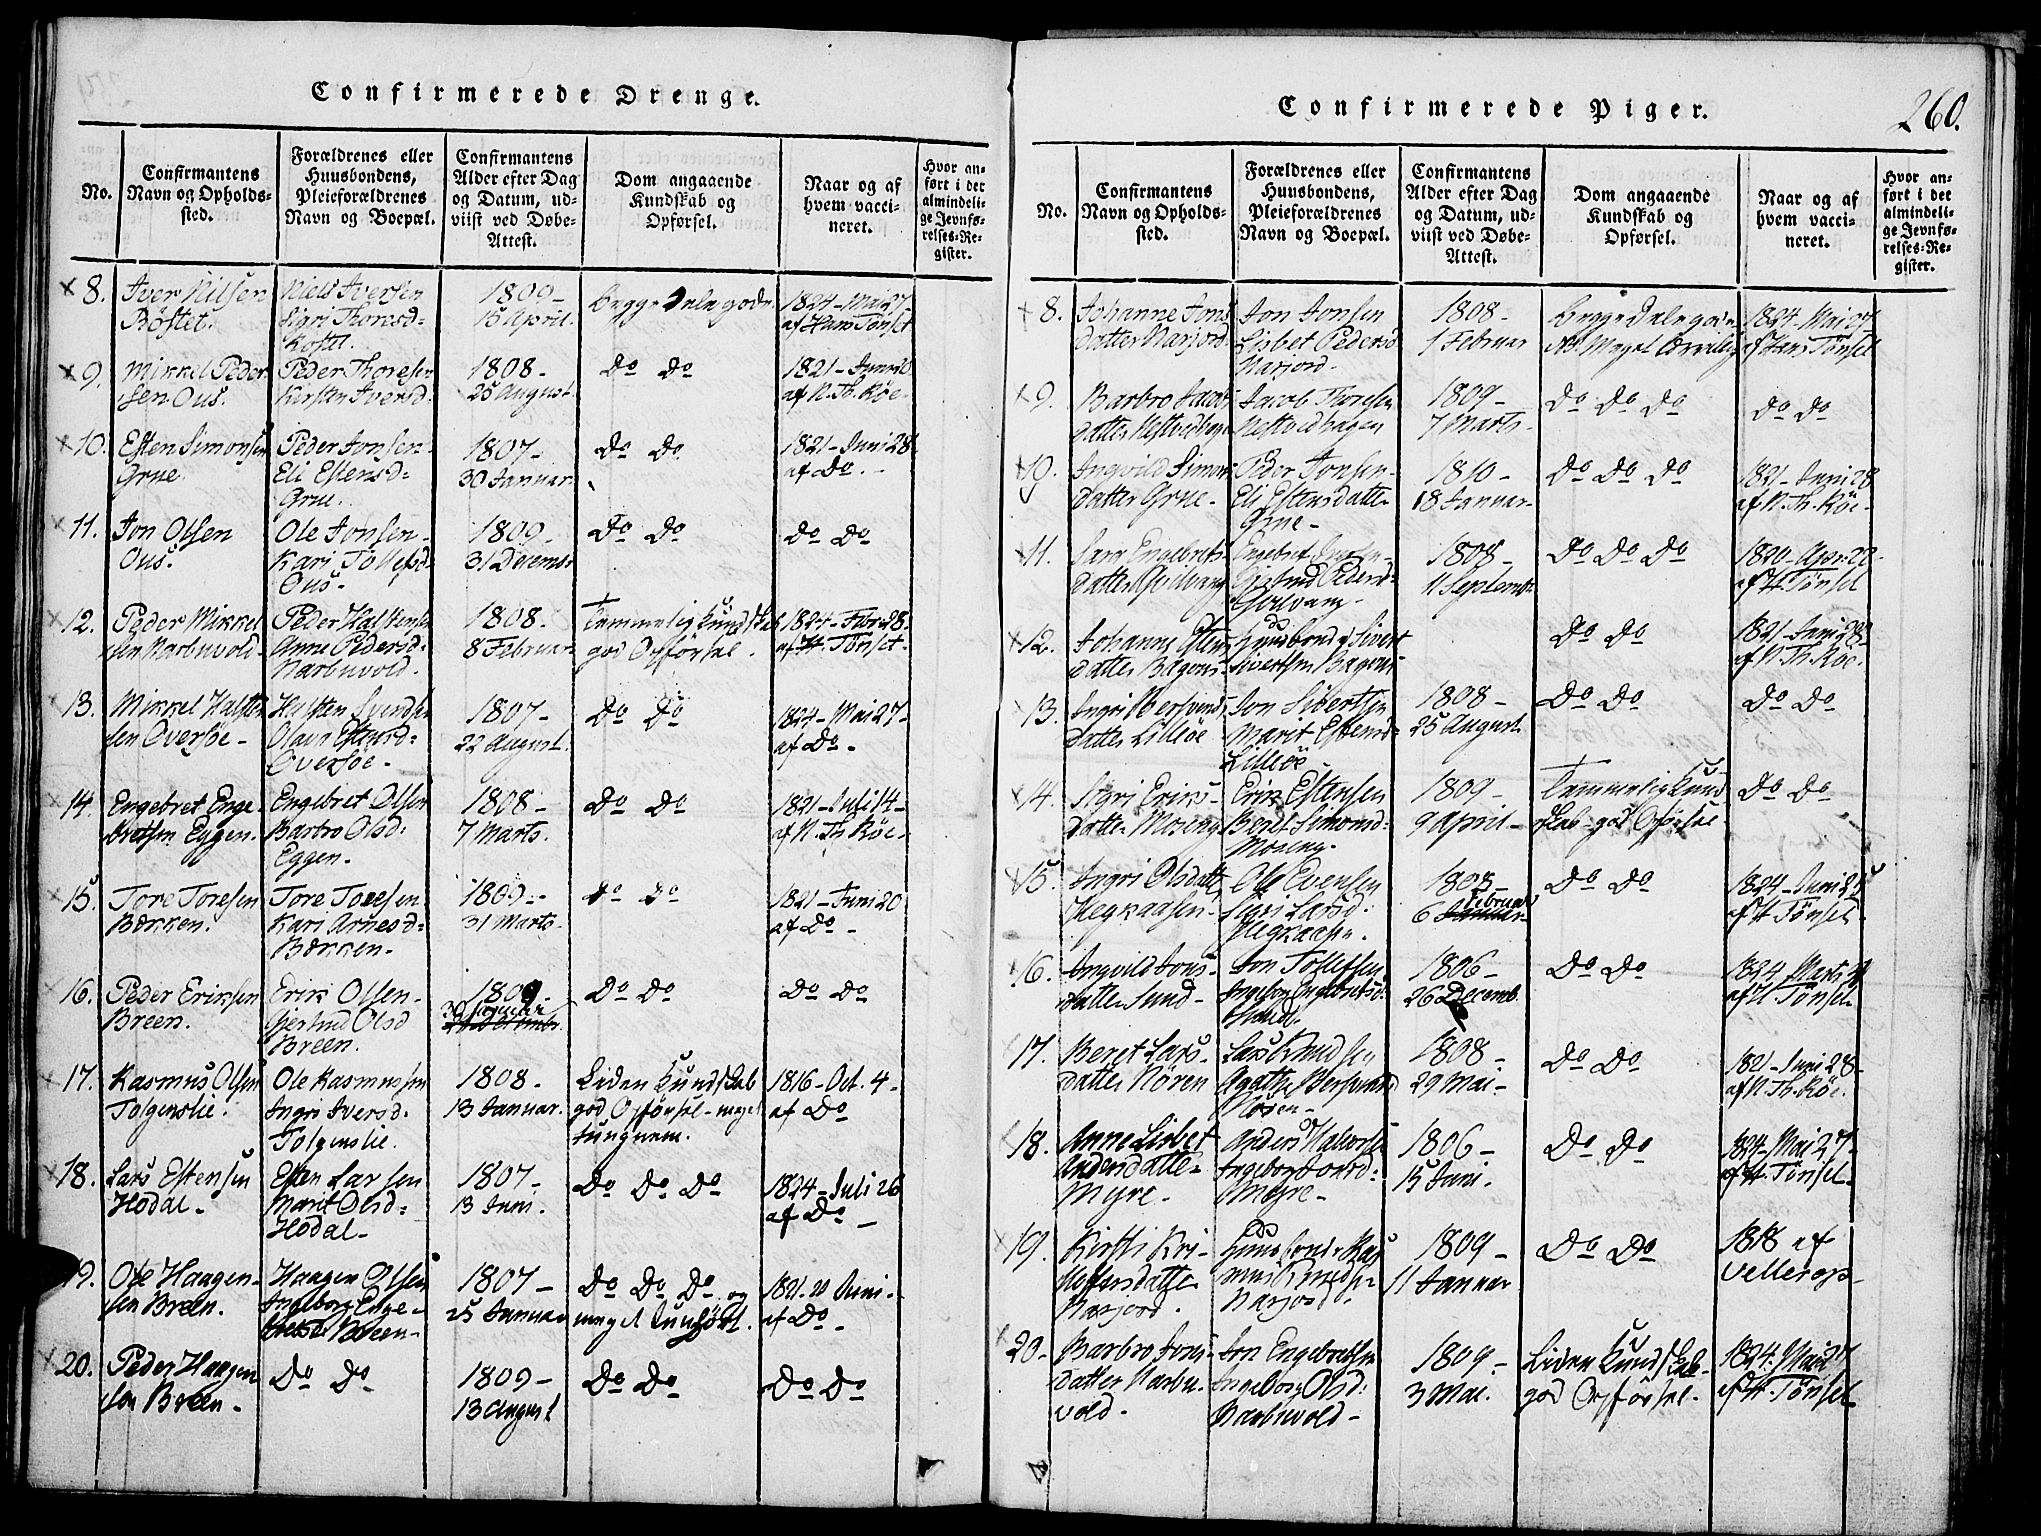 Confirmerede Drenge.
No.
Confirmantens
Navn og Opholds-
sted.
Forældrenes eller
Huusbondens,
Pleieforældrenes
Navn og Boepæl.
Confirmantens
Alder efter Dag
og Datum, ud-
viist ved Døbe-
Attest.
Dom angaaende
Kundskab og
Opførsel.
Naar og af
hvem vacci-
neret.
Hvor an-
ført i det
almindeli-
ge Jevnfø-
relses-Re-
gister.
x 8. Iver Nilsen
Röstet.
Niels Iversen
Sigri Thoresd=
1809-
15 April.
Begge Dele gode
1824-Mai 27
af Hans Tönset
x 9. Mikkel Peder
sen Ous.
Peder Thoresen
Kirsten Iversd.
1808-
25 August.
Do Do
1821-Juni 20
af N. Th. Röe-
x 10. Esten Simonsen
Grue.
Peder Jonsen-
Eli Estensd=
Grue.
1807-
30 Januar.
Do Do
1821-Juni 28.
af Do.-
11. Jon Olsen
Ous.
Ole Jonsen-
Kari Tollefsd
Ous-
1809-
31 Decembr
Do Do
Do Do
x 12. Peder Mikkel
sen Narbuvold-
Peder Halsten
Anne Pedersd=
Narbuvold.
1808-
8 Februar
Temmelig Kundskab
god Opførsel.
1824-Febr 28.
af H. Tönset-
13. Mikkel Halsten
sen Oversöe-
Halsten Svendsen
Olava Estensd=
Oversöe-
1807-
22 August.
Do Do
1824-Mai 27-
af Do-
14. Engebret Enge-
bretsen Eggen.
Engebret Olsen
Barbro Olsd:
Eggen-
1808-
7 Marts.
Do Do
1821-Juli 14-
af N. Th Röe-
15. Tore Toresen
Bækken.
Tore Toresen
Kari Arnesd=
Bækken-
1809-
31 Marts-
Do Do
1821-Juni 20
af Do-
16. Peder Eriksen
Breen.
Erik Olsen-
Gjertrud Olsd
Breen.
1809-
30 Januar
Do Do
Do Do
17. Rasmus Olsen
Tolgenslie.
Ole Rasmussen
Ingri Iversd:
Tolgenslie.
1808-
13 Januar.
Liden Kundskab
god Opførsel-meget
tungnem.
1816-Oct. 4-
af Do
18. Lars Estensen
Hodal-
Esten Larsen
Marit Olsd=
Hodal-
1807-
13 Juni.
Do Do Do
1824-Juli 26
af Do-
19. Ole Haagen-
sen Breen.
Haagen Olsen
Ingeborg Enge-
bretsd: Breen-
1807-
25 Januar
Do Do Do og
meget
1821. 20 Juni.-
af Do-
x 20. Peder Haagen
sen Breen-
Do Do
1809-
13 August
Do Do
Do Do
Confirmerede Piger.
260.
No.
Confirmantens
Navn og Opholds-
sted.
Forældrenes eller
Huusbondens,
Pleieforældrenes
Navn og Boepæl.
Confirmantens
Alder efter Dag
og Datum, ud-
viist ved Døbe-
Attest.
Dom angaaende
Kundskab og
Opførsel.
Naar og af
hvem vacci-
neret.
Hvor an-
ført i det
almindeli-
ge Jevnfø-
relses-Re-
gister.
x 8. Johanne Jons
datter Narjord
Jon Jonsen
Lisbet Pedersd
Narjord-
1808-
1 Februar
Begge Dele gode
1824-Mai 27
af Hans Tönset
x 9. Barbro Jacobs
datter Nestvedhagen
Jacob Thoresen
Nestvedhagen
1809-
7 Marts-
Do Do Do
Do Do
10. Ingvild Simons
datter Grue-
Peder Jonsen-
Eli Estensdatter
Grue-
1810-
18 Januar-
Do Do Do
1821-Juni 28
af N. Th. Röe-
x 11. Sara Engebrets
datter
Engebret
Gjertrud Pedersd=
1808-
11 Septembr
Do Do Do
1820-Apr. 22-
af H. Tönset
x 12. Johanne Estens
datter
Huusbond Sivert
Sivertsen
Do Do
1821-Juni 28
af N. Th. Röe.
13. Ingri
datter Lilleöe-
Jon Sivertsen
Marit Estensd=
Lilleöe-
1808-
25 August
Do Do
Do Do
14. Sigri Eriks-
datter Moseng
Erik Estensen
Beret Simonsd=
Moseng-
1809-
9 April-
Temmelig Kund
skab-god Opførsel-
Do Do
15. Ingri Olsdatter
Ole Evensen
Siri Larsd:
1808-
6 Februar
Do Do
1824-Juni 25
af H Tönset-
16. Ingvild Jons-
datter Sund-
Jon Tollefsen
Ingebor Engebretsd:
1806-
26 Decemb.
Do Do
1824 Marts
af H Tönset
17. Beret Lars-
datter Nören
Lars Knudsen
Agathe
Nören-
1808-
29 Mai-
Do Do
1821-Juni 28-
af N. Th. Röe.
18. Anne Lisbet
Andersdatter
Myre.
Anders Halvorsen
Ingeborg Jonsd:
Myre-
1806-
15 Juni.
Do Do
1824-Mai 27-
af H. Tönset-
19. Kirsti Kri-
stoffersdatter
Narjord.
Huusbond Ras
mus Knudsen
Narjord.
1809-
11 Januar
Do Do
1818 af
Vellerop-
x 20- Barbro Jons-
datter Narbu-
vold-
Jon Engebretsen
Ingeborg Olsd:
Narbuvold-
1809-
3 Mai.
Liden Kundskab-
god Opførsel-
1824. Mai 27
af H. Tönset-